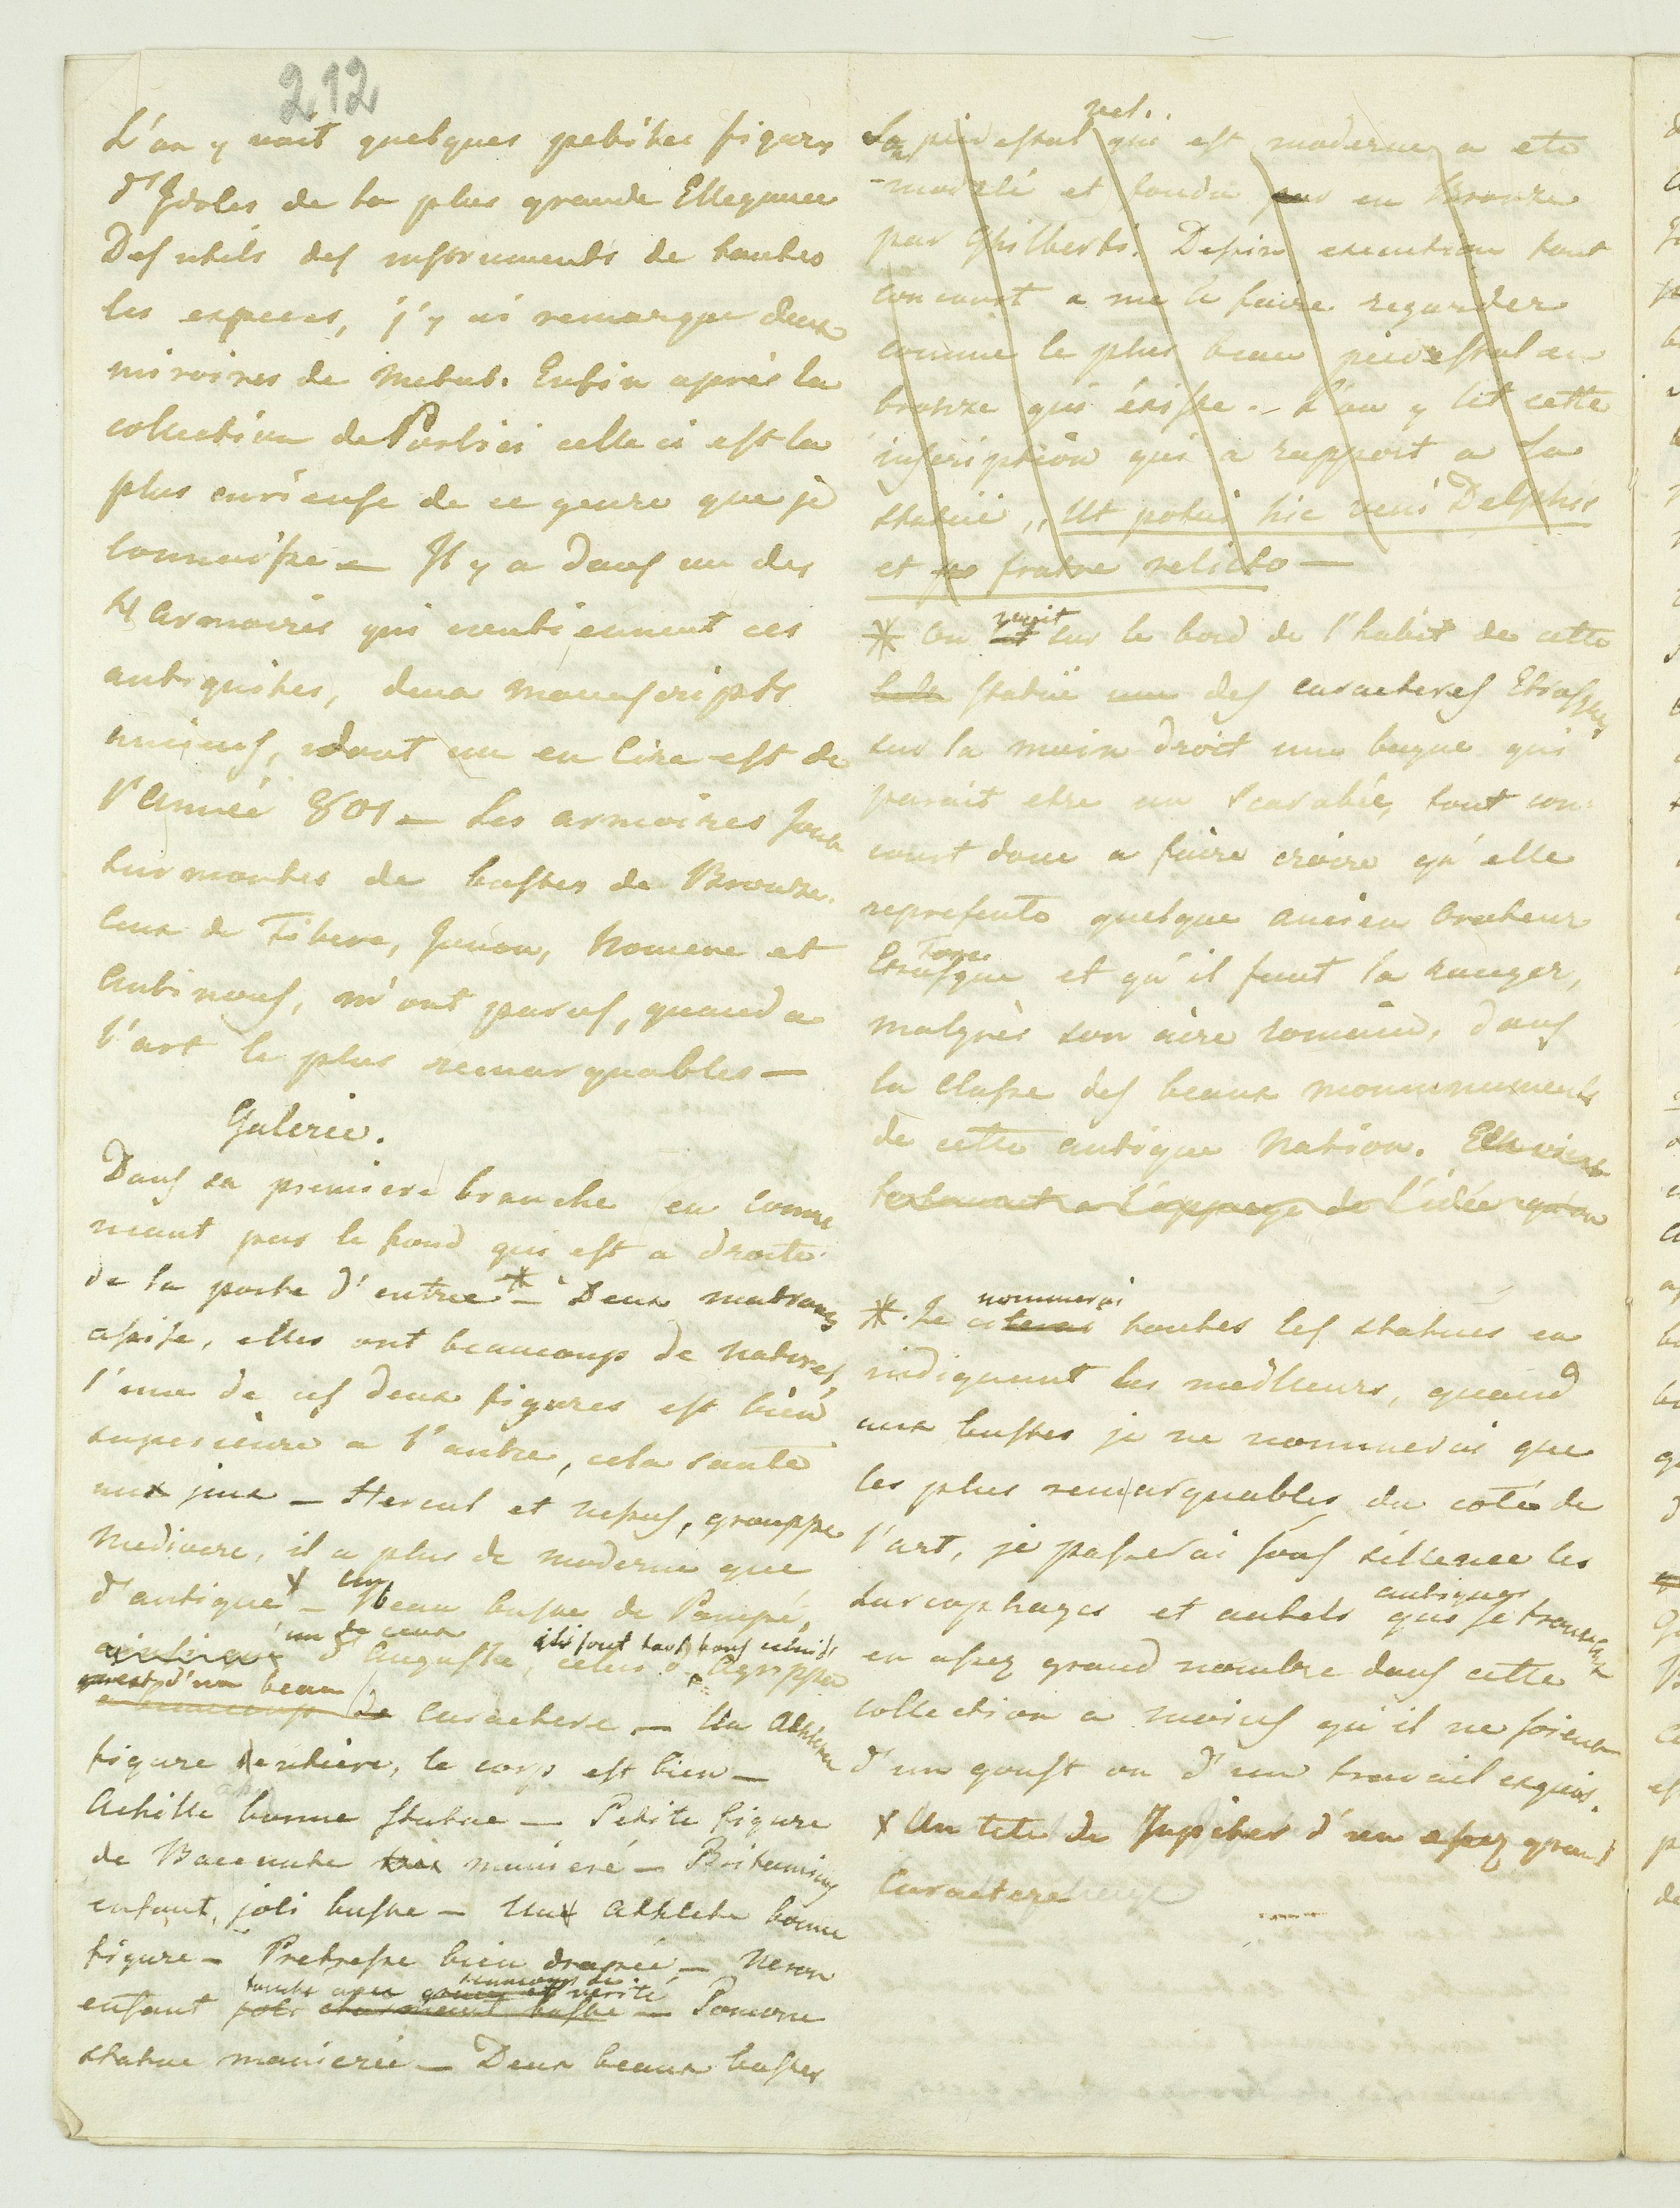 212
L'on y voit quelques petites figures
d'Idoles de la plus grande Ellegance
Des utils des instruments de toutes
les especes, j'y ai remarque deux
miroires de metal. Enfin après la
collection de Portici celle ci est la
plus curieuse de ce genre que je
connaisse — Il y a dans un des
4 armoires qui contiennent ces
antiquites, deux manuscripts
anciens, dont un en Cire est de
l'Année 801 — Les armoires sont
surmontes de bustes de Bronze.
Ceux de Tibere, Junon, Homere et
Antinous, m'ont parus, quand a
l'art le plus remarquables —
Galerie.
Dans sa premiere branche en comme
nçant par le fond qui est a droite
de la porte d'entree * — Deux matrones
assise, elles ont beaucoup de naturel,
l'une de ces deux figures est bien
superieure a l'autre, cela saute
aux jeux — Hercul et nesus, grouppe
mediocre, il a plus de moderne que
d'antique x — Un beau buste de Pompé,
un de ceux d'Auguste, celui d'Agrippa
ils sont tous bons celui d'
qui est d'un beau
a beaucoup de caractere — Un Athlete
figure entière, le corps est bien —
Achille bonne statue — Petite figure
de Bacante très manieré — Britanicus
enfant, joli buste — Un Athlete bonne
figure — Pretresse bien drapée — Neron
beaucoup de verité
enfant joli charmant buste — Pomone
statue manierée — Deux beaux bustes
net.
Son piedestal qui est moderne a ete
modelé et fondu par en Bronze
par Ghilberti. Dessin execution tout
concourt a me le faire regarder
comme le plus beau piedestal en
bronze qui existe. — L'on y lit cette
inscription qui a rapport a la
statuë „ Ut potui hic veni Delphis
et fratre relicto —
* On lit voit sur le bord de l'habit de cette
belle statuë une des caracteres Etrusques
sur la main droit une bague qui
parait etre un scarabée, tout con
court donc a faire croire qu'elle
represente quelque ancien Orateur
Etrusque et qu'il faut la ranger,
malgrès son aire romain, dans
la Classe des beaux monnumments
de cette antique Nation. Elle vient
a l'appuye de l'idée qu'on
* Je citerai nommerai toutes les statues en
indiquant les meilleurs, quand
aux bustes je ne nommerai que
les plus remarquables du coté de
l'art, je passerai sous sillence les
sarcophages et autels antiques qui se trouvent
en assez grand nombre dans cette
collection a moins qu'il ne soient
d'un goust ou d'un travail exquis.
x Un tete de Jupiter d'un assez grand
Caractere